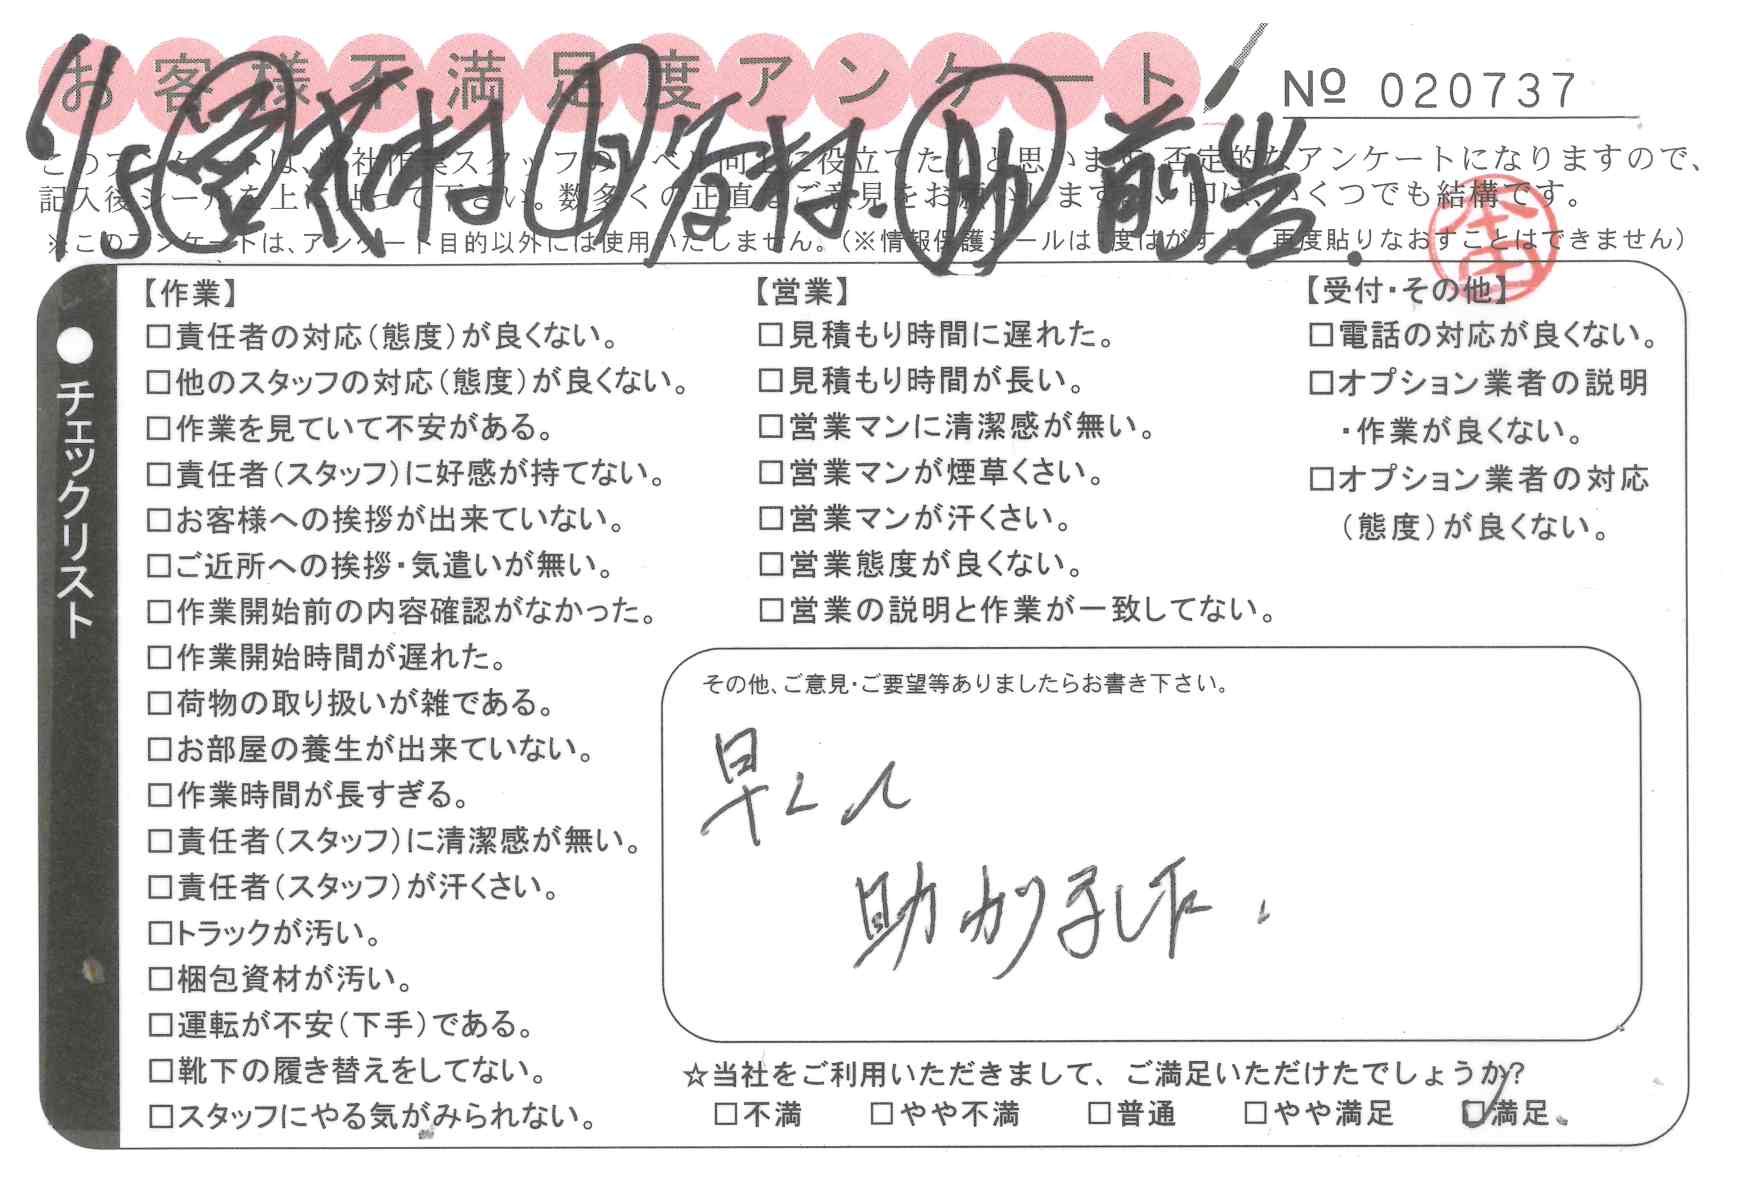 お客様不満足度アンケート
No 020737
このアンケートは、弊社作業スタッフのレベル向上に役立てたいと思います。否定的なアンケートになりますので、
記入後シールを上に貼って下さい。数多くの正直なご意見をお願いします。い印は、いくつでも結構です。
※このアンケートは、アンケート目的以外には使用いたしません。（※情報保護シールは1度はがすと、再度貼りなおすことはできません）
助 前岩.
●チェックリスト
【作業】
□責任者の対応（態度）が良くない。
□他のスタッフの対応（態度）が良くない。
□作業を見ていて不安がある。
□責任者（スタッフ）に好感が持てない。
□お客様への挨拶が出来ていない。
□ご近所への挨拶・気遣いが無い。
□作業開始前の内容確認がなかった。
□作業開始時間が遅れた。
□荷物の取り扱いが雑である。
□お部屋の養生が出来ていない。
□作業時間が長すぎる。
□責任者（スタッフ）に清潔感が無い。
□責任者（スタッフ）が汗くさい。
□トラックが汚い。
□梱包資材が汚い。
□運転が不安（下手）である。
□靴下の履き替えをしてない。
□スタッフにやる気がみられない。
【営業】
□見積もり時間に遅れた。
□見積もり時間が長い。
□営業マンに清潔感が無い。
□営業マンが煙草くさい。
□営業マンが汗くさい。
□営業態度が良くない。
□営業の説明と作業が一致してない。
【受付・その他】
□電話の対応が良くない。
□オプション業者の説明
・作業が良くない。
□オプション業者の対応
（態度）が良くない。
その他、ご意見・ご要望等ありましたらお書き下さい。
早くて
助かりました。
☆当社をご利用いただきまして、ご満足いただけたでしょうか?
□不満 □やや不満 □普通 □やや満足 ☑満足